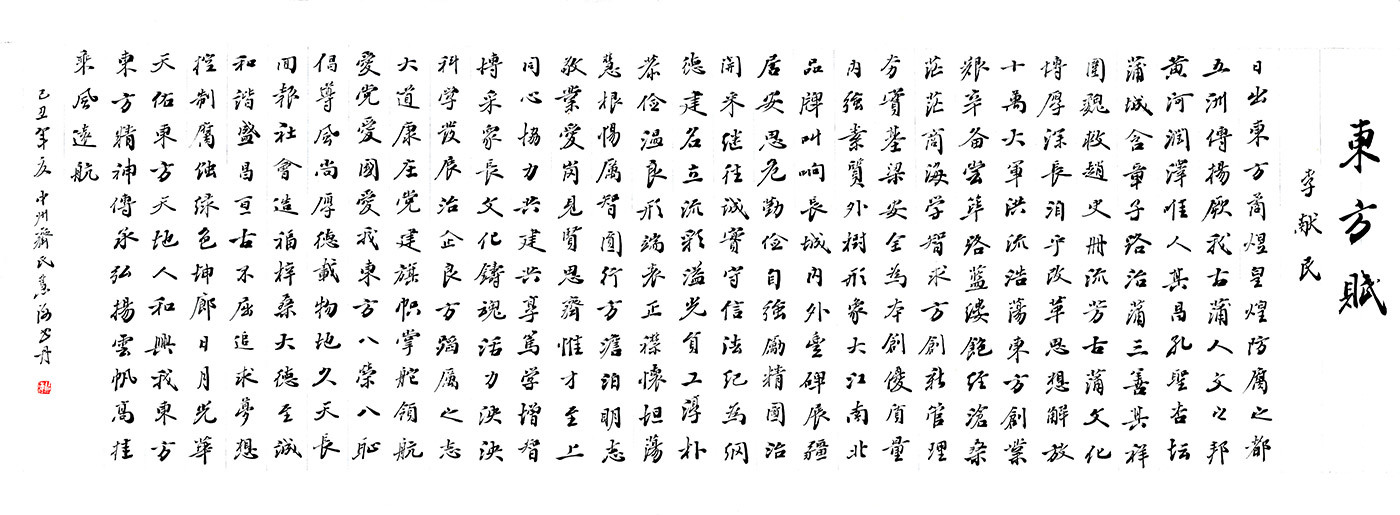 東方賦
李献民
日出東方商煜皇煌防腐之都
五洲傳揚厥我古蒲人文之邦
黄河潤澤惟人其昌孔聖杏坛
蒲城含章子路治蒲三善其祥
圍魏救趙史册流芳古蒲文化
博厚深長洎乎改革思想解放
十萬大軍洪流浩蕩東方創業
艰辛备尝筚路蓝缕飽经滄桑
茫茫商海学智求方創新管理
夯實基梁安全為本創優质量
内强素質外樹形象大江南北
品牌叫响长城内外豊碑展疆
居安思危勤俭自强励精图治
開来继往诚實守信法纪為纲
德建名立流彩溢光員工淳朴
恭俭温良形端表正襟懷坦蕩
慧根惕厲智圓行方澹泊明志
敬業愛崗見賢思齊惟才至上
同心協力共建共享篤学增智
博采家長文化鑄魂活力泱泱
科學發展治企良方蹈厲之志
大道康庄党建旗帜掌舵领航
愛党愛國愛我東方八榮八恥
倡導風尚厚德載物地久天長
回報社會造福梓桑大德至誠
和谐盛昌亘古不屈追求夢想
控制腐蚀绿色坤郎日月光華
天佑東方天地人和興我東方
東方精神傳承弘揚雲帆高挂
乘風遠航
己丑年 中州齊民 书丹